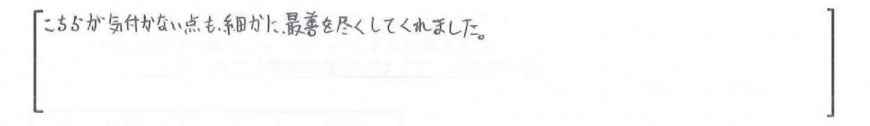 こちらが気付かない点も、細かに、最善を尽くしてくれました。